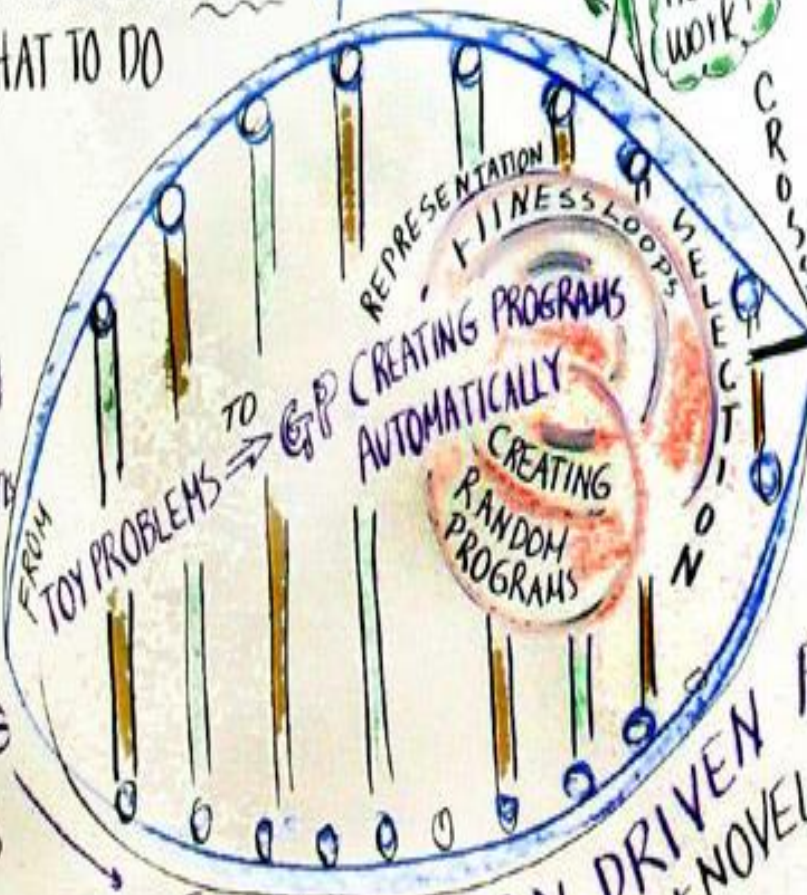 HAT TO DO
WORK!
CROSS
REPRESENTATION
FITNESS LOOPS
SELECTION
FROM
TOY PROBLEMS
TO
GP CREATING PROGRAMS
AUTOMATICALLY
CREATING
RANDOM
PROGRAMS
DRIVEN
NOVEL